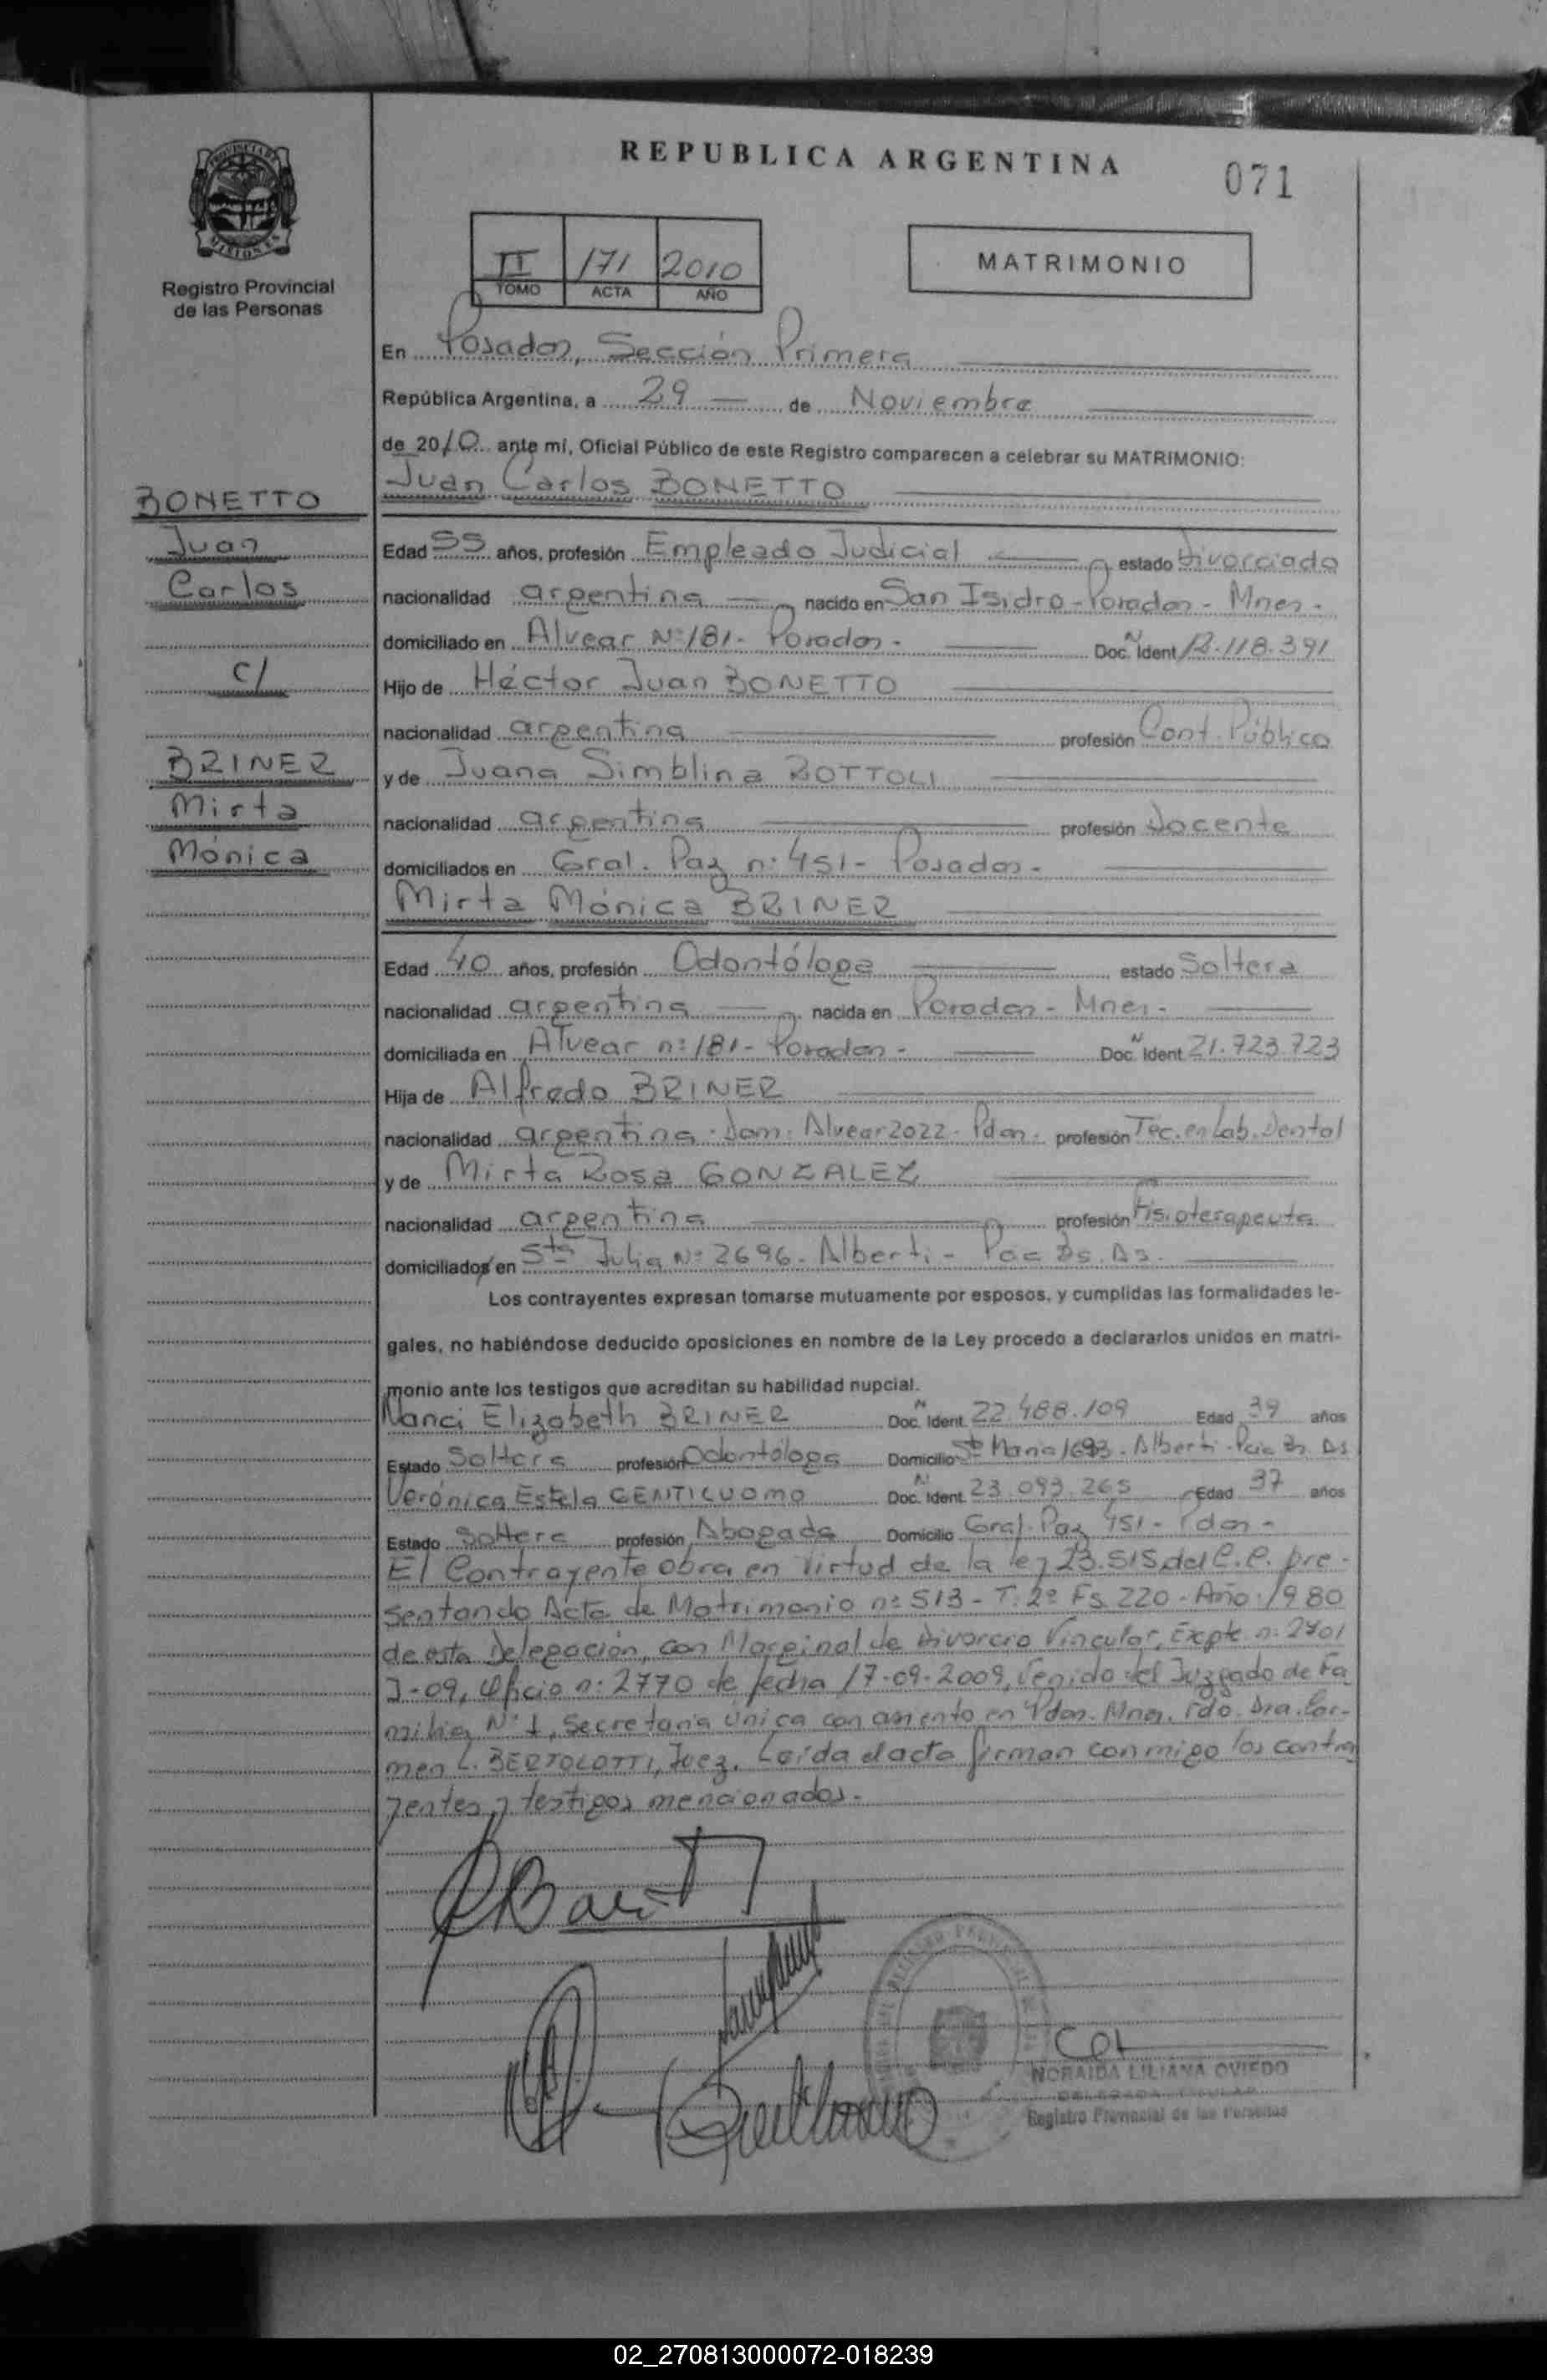 REPUBLICA ARGENTINA
071
PROVINCIA DE
MISIONES
Registro Provincial
de las Personas
II 171 2010
TOMO ACTA AÑO
MATRIMONIO
En Posadas, Sección Primera
República Argentina, a 29 de Noviembre
de 2010 ante mí, Oficial Público de este Registro comparecen a celebrar su MATRIMONIO:
BONETTO
Juan
Carlos
c/
BRINER
Mirta
Mónica
Juan Carlos BONETTO
Edad 55 años, profesión Empleado Judicial estado divorciado
nacionalidad argentina nacido en San Isidro - Posadas - Mnes -
domiciliado en Alvear Nº 181 - Posadas - Doc. Ident N 12.118.391
Hijo de Héctor Juan BONETTO
nacionalidad argentina profesión Cont. Público
y de Juana Simblina BOTTOLI
nacionalidad argentina profesión docente
domiciliados en Gral. Paz nº 451 - Posadas -
Mirta Mónica BRINER
Edad 40 años, profesión Odontóloga estado Soltera
nacionalidad argentina nacida en Posadas - Mnes -
domiciliada en Alvear nº 181 - Posadas - Doc. Ident N 21.723.723
Hija de Alfredo BRINER
nacionalidad argentina. Dom. Alvear 2022 - Pdas. profesión Tec. en Lab. Dental
y de Mirta Rosa GONZALEZ
nacionalidad argentina profesión Fisioterapeuta
domiciliados en Sta Julia Nº 2696 - Alberti - Pcia Bs. As.
Los contrayentes expresan tomarse mutuamente por esposos, y cumplidas las formalidades le-
gales, no habiéndose deducido oposiciones en nombre de la Ley procedo a declararlos unidos en matri-
monio ante los testigos que acreditan su habilidad nupcial.
Nanci Elizabeth BRINER Doc. Ident. N 22.488.109 Edad 39 años
Estado Soltera profesión Odontóloga Domicilio Sta Maria 1693 - Alberti - Pcia Bs. As
Verónica Estela GENTILUOMO Doc. Ident. N 23.093.265 Edad 37 años
Estado Soltera profesión Abogada Domicilio Gral. Paz 451 - Pdas -
El Contrayente obra en virtud de la ley 23.515 del C.C. pre-
sentando Acta de Matrimonio nº 513 - T: 2º Fs 220 - Año: 1980
de esta Delegación, con Marginal de divorcio Vincular, Expte nº 2701
J-09, Oficio nº 2770 de fecha 17-09-2009, venido del Juzgado de Fa
milia Nº 1, Secretaria Unica con asiento en Pdas. Mnes. Fdo. Dra. Car-
men L. BERTOLOTTI, Juez. Leída el acta firman conmigo los contra
yentes y testigos mencionados.
NORAIDA LILIANA OVIEDO
DELEGADA TITULAR
Registro Provincial de las Personas
02_270813000072-018239